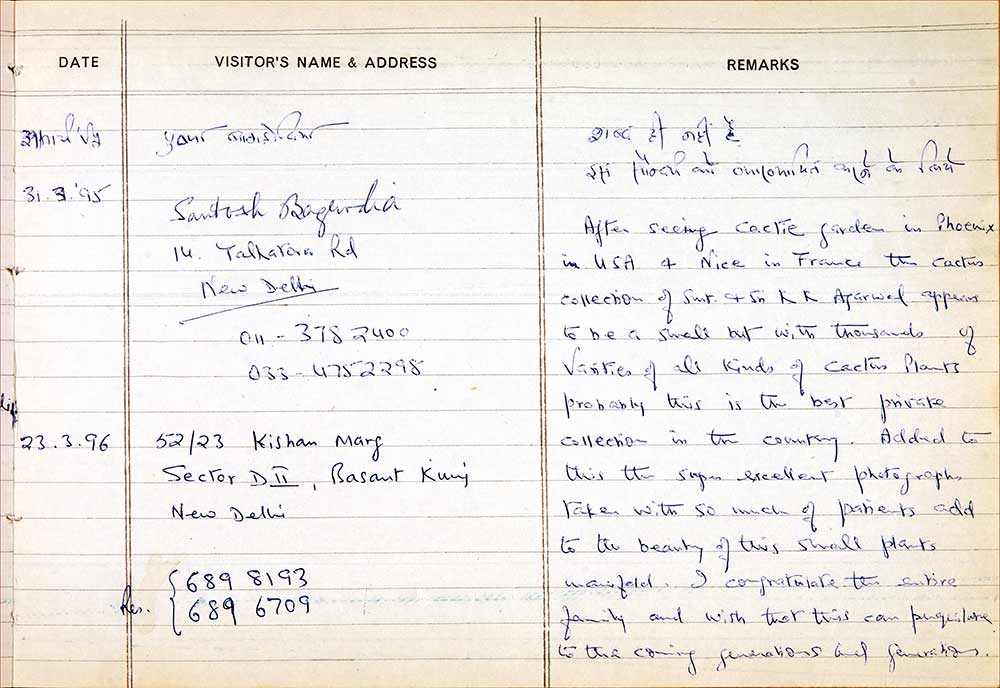 DATE
VISITOR'S NAME & ADDRESS
REMARKS
शब्द ही नहीं है
इस को के लिये
31.3.'95
Santosh Bagrodia
14. Talkatora Rd
New Delhi
011 - 378 2400
033 - 4752298
After seeing cactie garden in Phoenix
in USA & Nice in France the cactus
collection of Smt. & Sri K K Agarwal appears
to be a small but with thousands of
Varities of all kinds of cactus Plants
probably this is the best private
collection in the country. Added to
this the super excellent photographs
taken with so much of patients add
to the beauty of this small plants
manifold. I congratulate the entire
family and wish that this can
to the coming generations and generations.
23.3.96
52/23 Kishan Marg
Sector D II, Basant Kunj
New Delhi
Res.
689 8193
689 6709